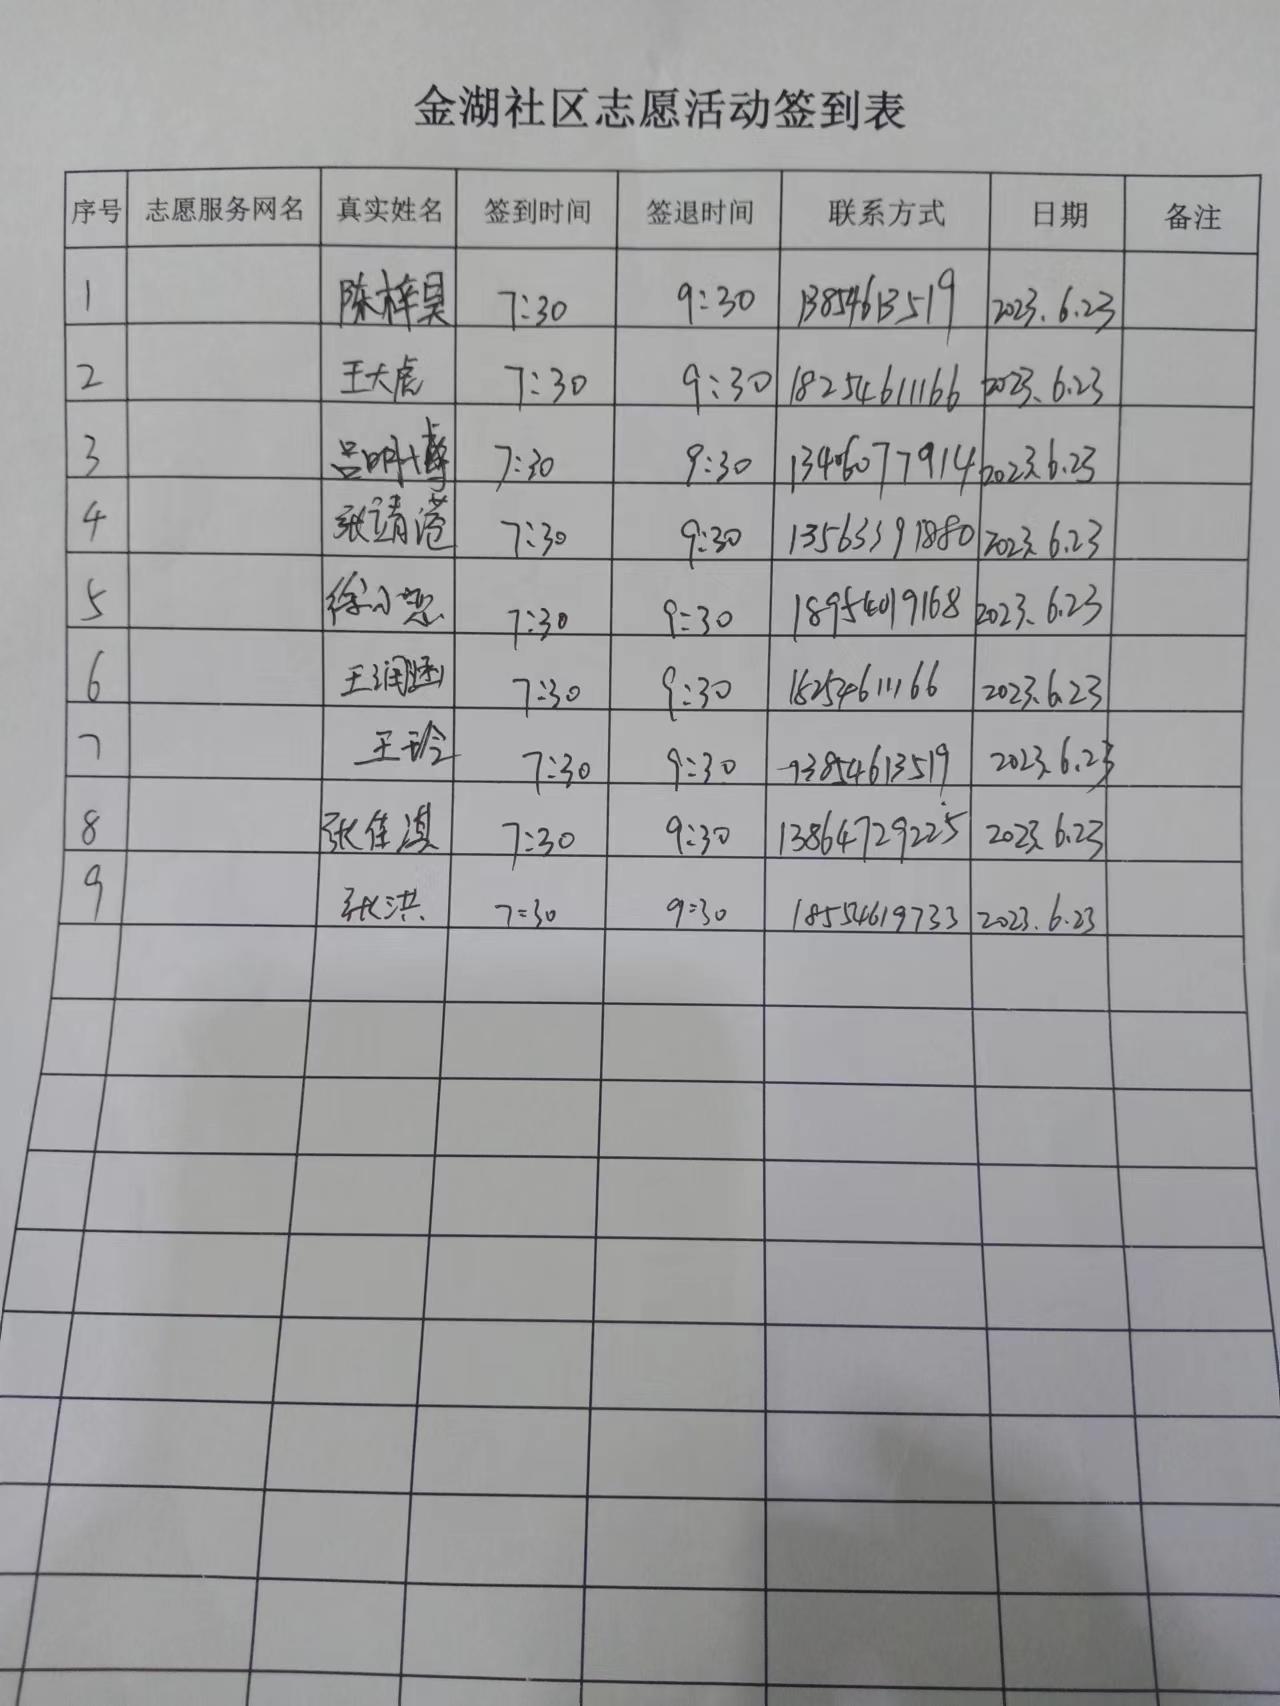 金湖社区志愿活动签到表
序号 志愿服务网名 真实姓名 签到时间 签退时间 联系方式 日期 备注
1 陈梓昊 7:30 9:30 13854613519 2023.6.23
2 王大虎 7:30 9:30 18254611166 2023.6.23
3 吕明博 7:30 9:30 13406077914 2023.6.23
4 张靖 7:30 9:30 13563391880 2023.6.23
5 徐小 7:30 9:30 18954019168 2023.6.23
6 王润涵 7:30 9:30 18254611166 2023.6.23
7 王玲 7:30 9:30 13854613519 2023.6.23
8 张佳淇 7:30 9:30 13864729225 2023.6.23
9 张洪 7:30 9:30 18554619733 2023.6.23